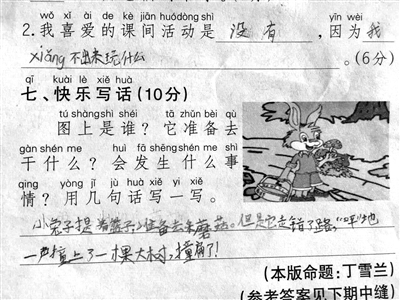 wǒ xǐ ài de kè jiān huódòng shì yīn wèi
2.我喜爱的课间活动是 没有 ,因为我
xiǎng不出来玩什么 。(6分)
qī kuài lè xiě huà
七、快乐写话(10分)
tú shàng shì shéi tā zhǔn bèi qù
图上是谁?它准备去
gàn shén me huì fā shēng shén me shì
干什么?会发生什么事
qíng yòng jǐ jù huà xiě yi xiě
情?用几句话写一写。
小兔子提着篮子,准备去采蘑菇。但是它走错了路,“咩”地
一声撞上了一棵大树,撞扁了!
(本版命题:丁雪兰)
(参考答案见下期中缝)